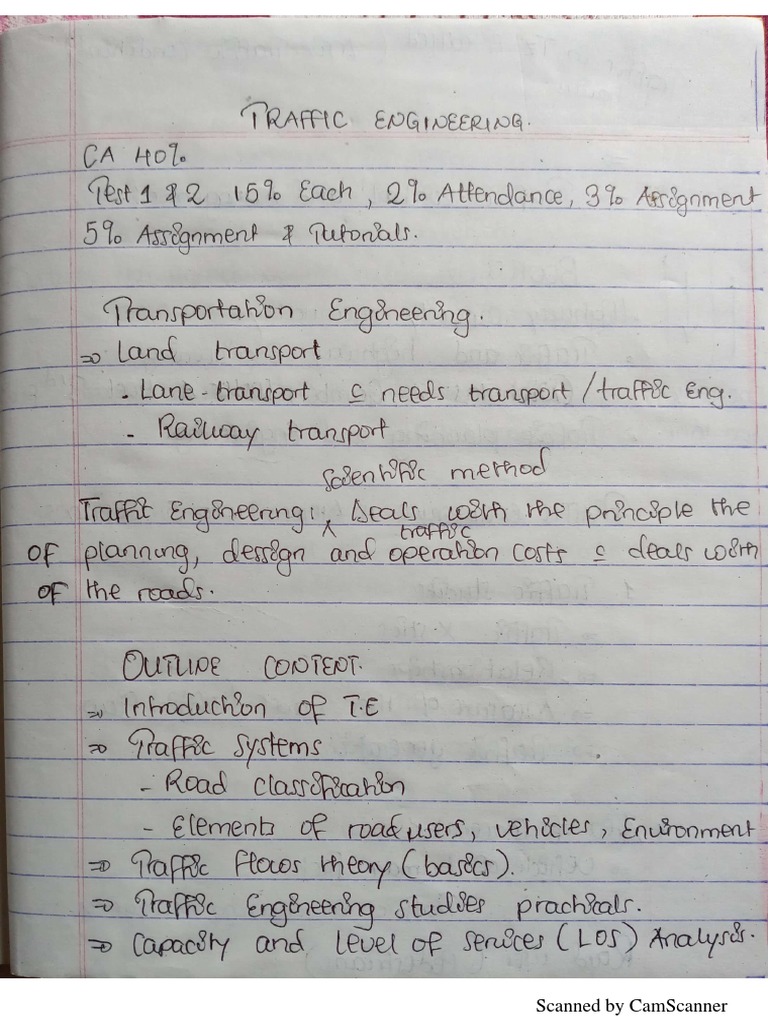 TRAFFIC ENGINEERING.
CA 40%
Test 1 & 2 15% Each, 2% Attendance, 3% Assignment
5% Assignment & Tutorials.
Transportation Engineering.
⇒ Land transport
- Lane-transport ⊆ needs transport/traffic Eng.
- Railway transport
scientific method
Traffic Engineering: ^ Deals with the principle the
traffic
of planning, dessign and operation costs ⊆ deals with
of the roads.
OUTLINE CONTENT.
⇒ Introduction of T.E
⇒ Traffic systems
- Road classification
- Elements of road users, vehicles, Environment
⇒ Traffic flows theory (basics).
⇒ Traffic Engineering studies practicals.
⇒ Capacity and level of services (LOS) Analysis.
Scanned by CamScanner